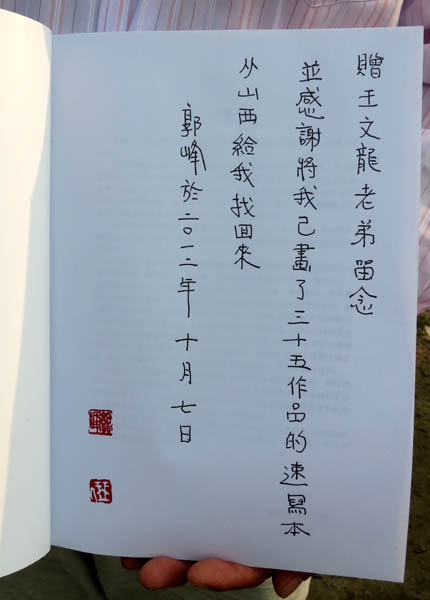 贈王文龍老弟留念
並感謝將我已畫了三十五作品的速寫本
从山西給我找回來
郭峰於二〇一二年十月七日